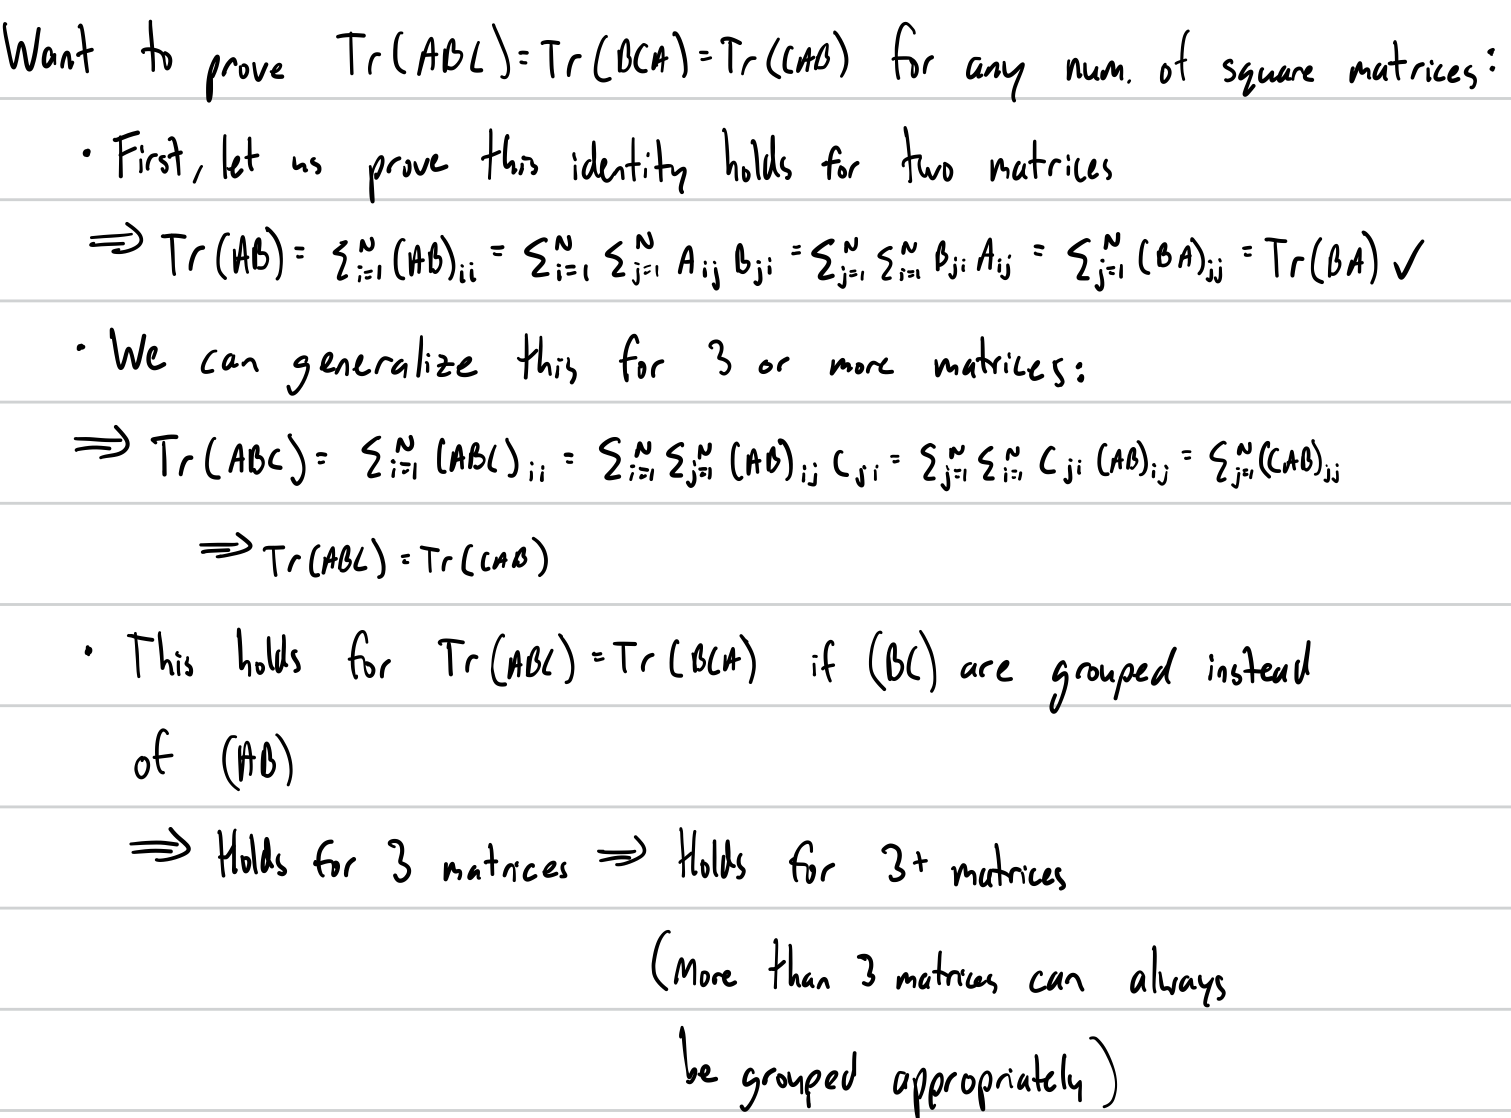 Want to prove Tr(ABC)=Tr(BCA)=Tr(CAB) for any num. of square matrices:
• First, let us prove this identity holds for two matrices
⇒ Tr(AB) = Σ_{i=1}^N (AB)_{ii} = Σ_{i=1}^N Σ_{j=1}^N A_{ij} B_{ji} = Σ_{j=1}^N Σ_{i=1}^N B_{ji} A_{ij} = Σ_{j=1}^N (BA)_{jj} = Tr(BA) ✓
• We can generalize this for 3 or more matrices:
⇒ Tr(ABC) = Σ_{i=1}^N (ABC)_{ii} = Σ_{i=1}^N Σ_{j=1}^N (AB)_{ij} C_{ji} = Σ_{j=1}^N Σ_{i=1}^N C_{ji} (AB)_{ij} = Σ_{j=1}^N (CAB)_{jj}
⇒ Tr(ABC) = Tr(CAB)
• This holds for Tr(ABC) = Tr(BCA) if (BC) are grouped instead
of (AB)
⇒ Holds for 3 matrices ⇒ Holds for 3+ matrices
(More than 3 matrices can always
be grouped appropriately)